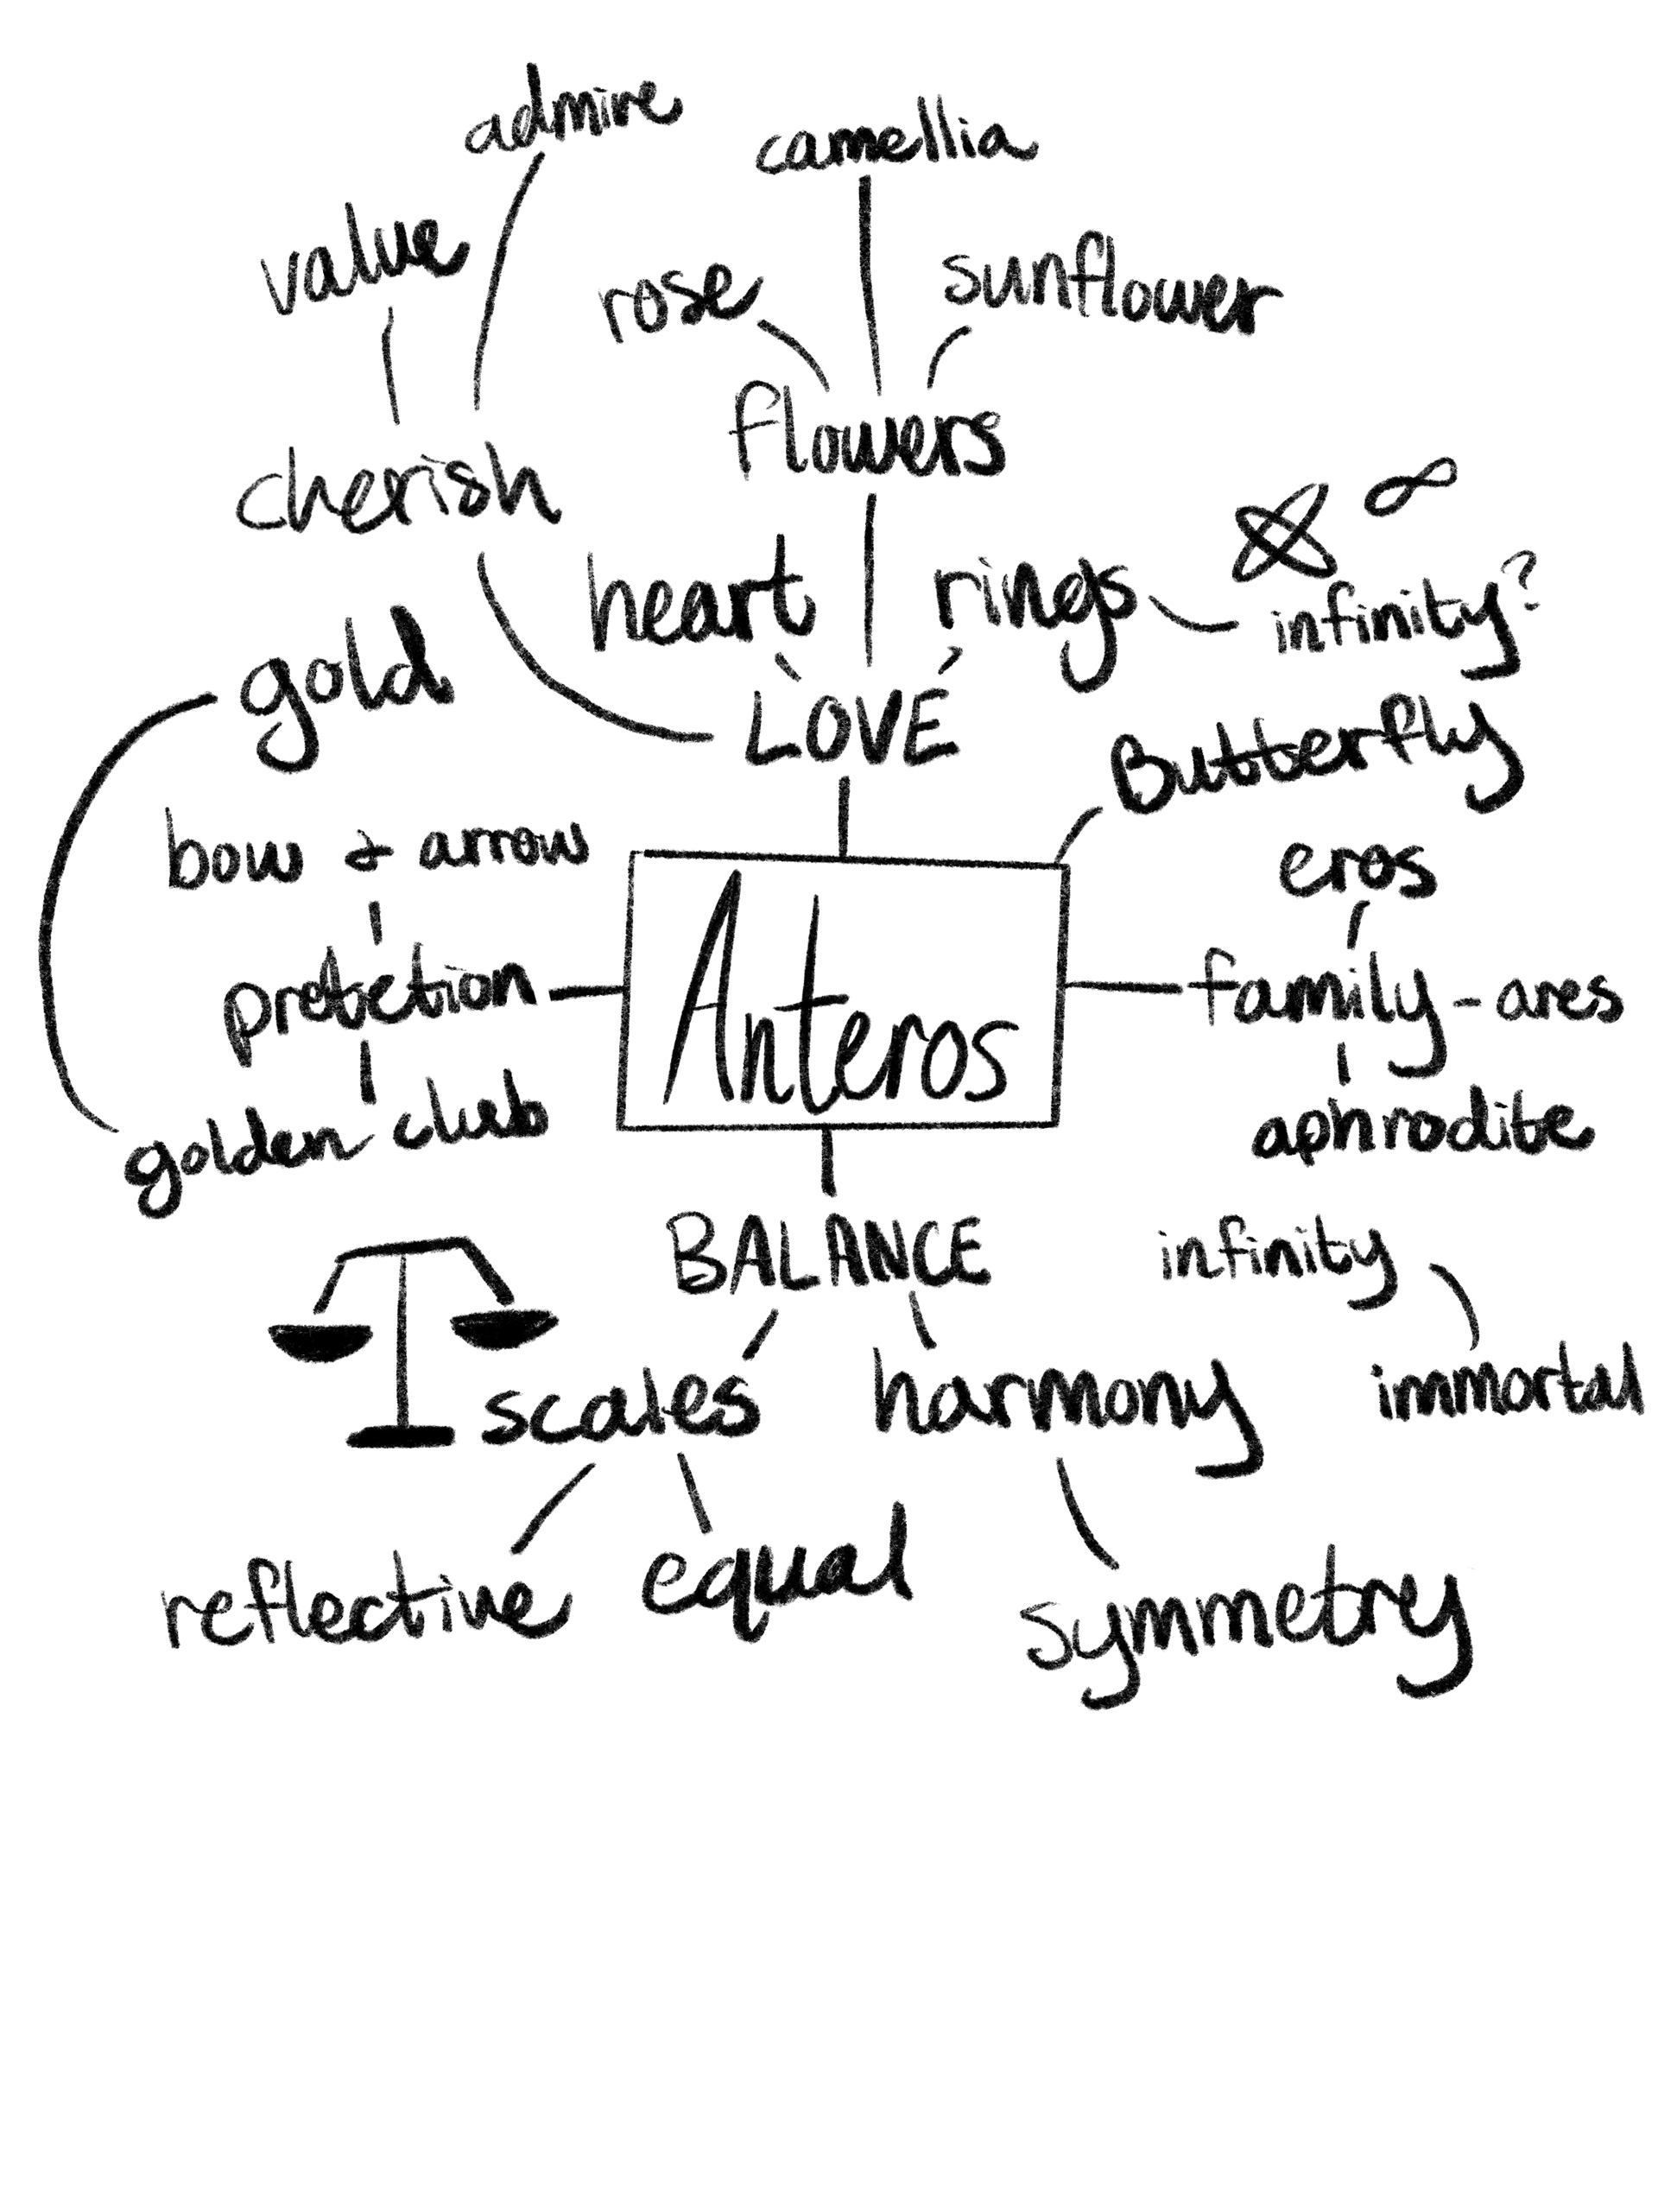 admire
camellia
value
rose
sunflower
flowers
cherish
∞
heart
rings
infinity?
gold
LOVE
Butterfly
bow & arrow
eros
Anteros
protetion
family - ares
golden club
aphrodite
BALANCE
infinity
scales
harmony
immortal
reflective
equal
symmetry